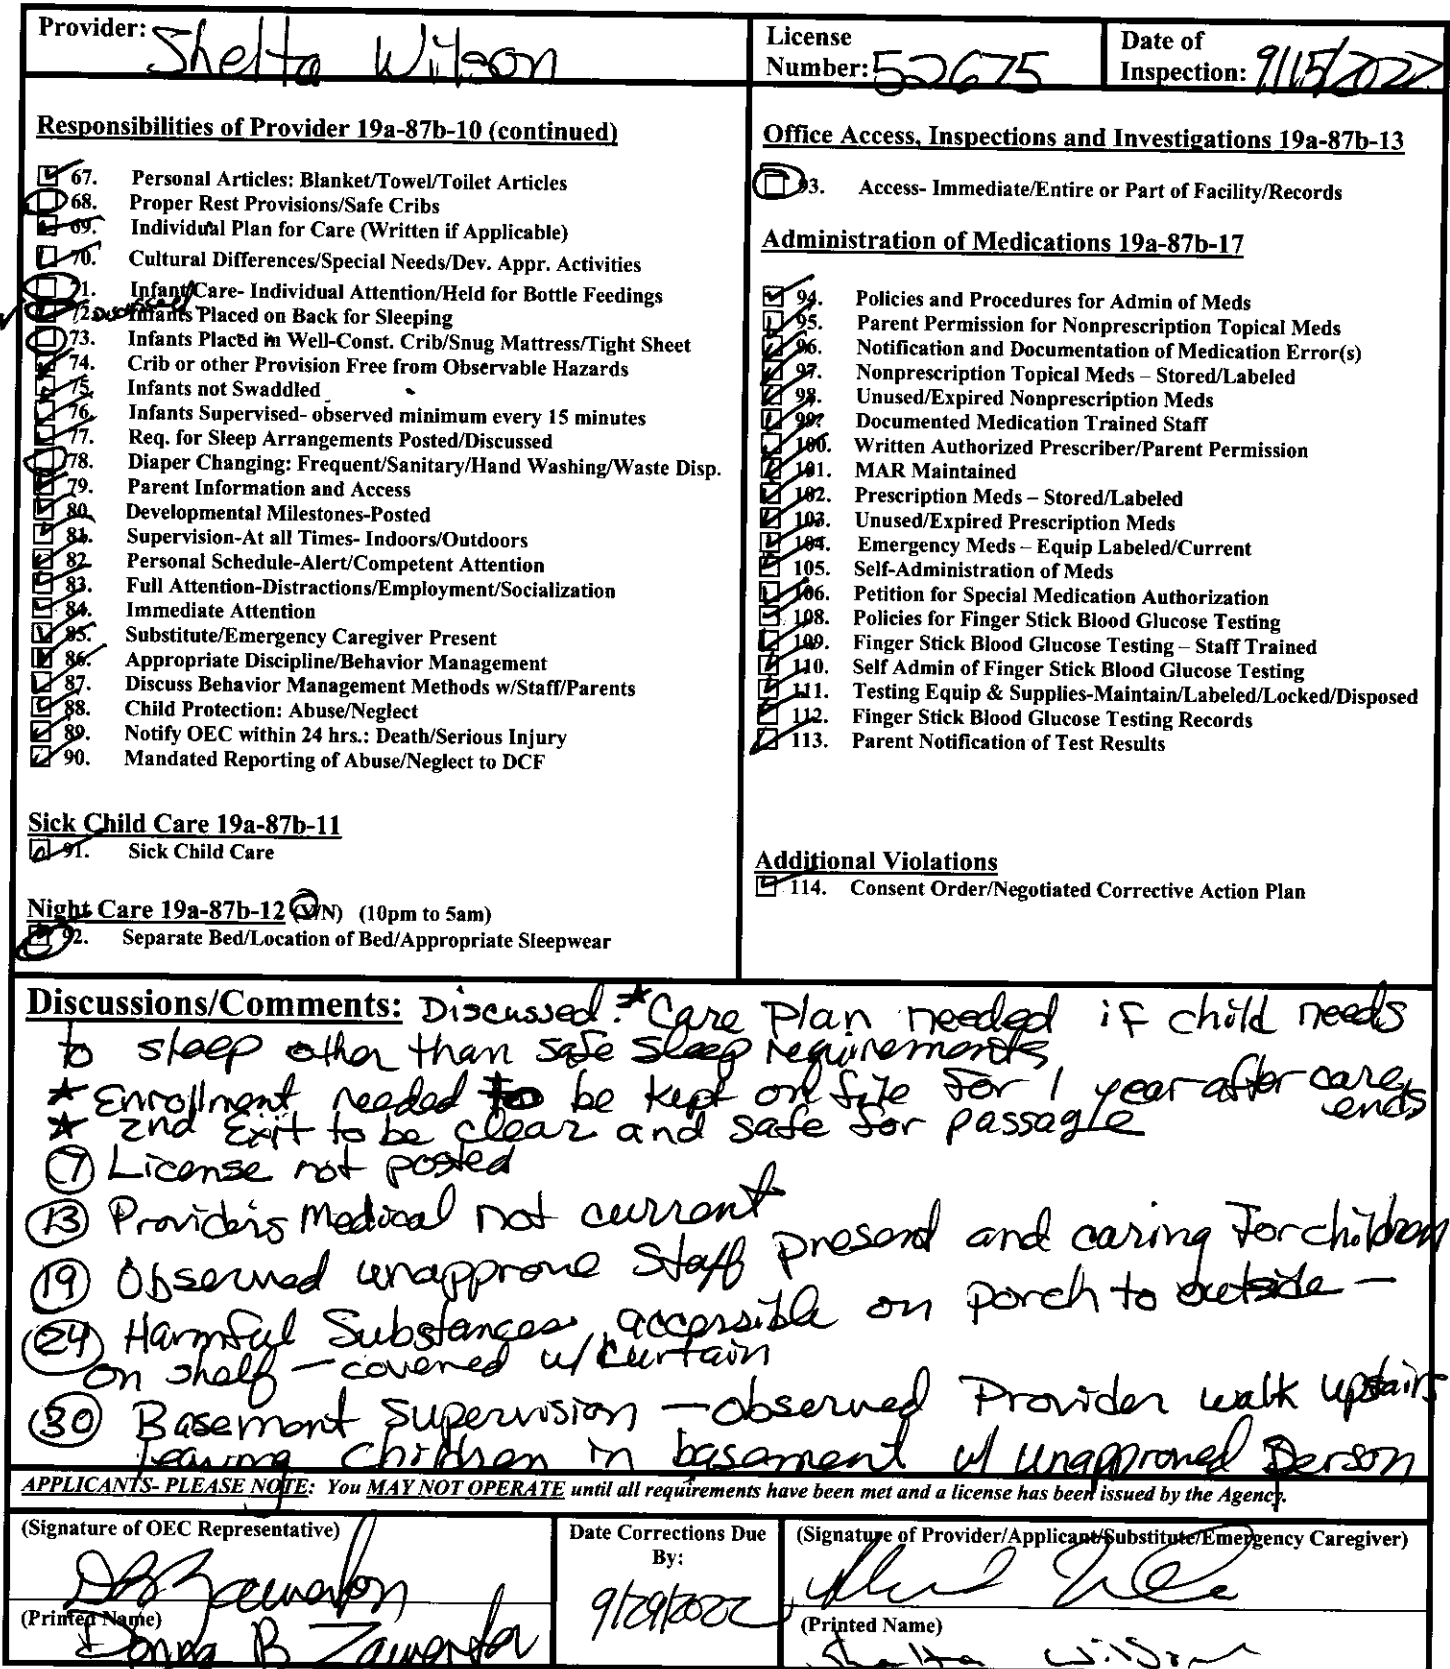 Provider: Shelta Wilson
License Number: 52675
Date of Inspection: 9/15/2022
Responsibilities of Provider 19a-87b-10 (continued)
67. Personal Articles: Blanket/Towel/Toilet Articles
68. Proper Rest Provisions/Safe Cribs
69. Individual Plan for Care (Written if Applicable)
70. Cultural Differences/Special Needs/Dev. Appr. Activities
71. Infant Care- Individual Attention/Held for Bottle Feedings
72. Discussed Infants Placed on Back for Sleeping
73. Infants Placed in Well-Const. Crib/Snug Mattress/Tight Sheet
74. Crib or other Provision Free from Observable Hazards
75. Infants not Swaddled
76. Infants Supervised- observed minimum every 15 minutes
77. Req. for Sleep Arrangements Posted/Discussed
78. Diaper Changing: Frequent/Sanitary/Hand Washing/Waste Disp.
79. Parent Information and Access
80. Developmental Milestones-Posted
81. Supervision-At all Times- Indoors/Outdoors
82. Personal Schedule-Alert/Competent Attention
83. Full Attention-Distractions/Employment/Socialization
84. Immediate Attention
85. Substitute/Emergency Caregiver Present
86. Appropriate Discipline/Behavior Management
87. Discuss Behavior Management Methods w/Staff/Parents
88. Child Protection: Abuse/Neglect
89. Notify OEC within 24 hrs.: Death/Serious Injury
90. Mandated Reporting of Abuse/Neglect to DCF
Sick Child Care 19a-87b-11
91. Sick Child Care
Night Care 19a-87b-12 (Y/N) (10pm to 5am)
92. Separate Bed/Location of Bed/Appropriate Sleepwear
Office Access, Inspections and Investigations 19a-87b-13
93. Access- Immediate/Entire or Part of Facility/Records
Administration of Medications 19a-87b-17
94. Policies and Procedures for Admin of Meds
95. Parent Permission for Nonprescription Topical Meds
96. Notification and Documentation of Medication Error(s)
97. Nonprescription Topical Meds – Stored/Labeled
98. Unused/Expired Nonprescription Meds
99. Documented Medication Trained Staff
100. Written Authorized Prescriber/Parent Permission
101. MAR Maintained
102. Prescription Meds – Stored/Labeled
103. Unused/Expired Prescription Meds
104. Emergency Meds – Equip Labeled/Current
105. Self-Administration of Meds
106. Petition for Special Medication Authorization
108. Policies for Finger Stick Blood Glucose Testing
109. Finger Stick Blood Glucose Testing – Staff Trained
110. Self Admin of Finger Stick Blood Glucose Testing
111. Testing Equip & Supplies-Maintain/Labeled/Locked/Disposed
112. Finger Stick Blood Glucose Testing Records
113. Parent Notification of Test Results
Additional Violations
114. Consent Order/Negotiated Corrective Action Plan
Discussions/Comments: Discussed: * Care Plan needed if child needs
to sleep other than safe sleep requirements
* Enrollment needed to be kept on file for 1 year after care ends
* 2nd Exit to be clear and safe for passagle
(7) License not posted
(13) Provider's Medical not current
(19) Observed unapprove staff present and caring for children
(24) Harmful Substances accessible on porch to outside –
on shelf – covered w/ curtain
(30) Basement supervision – observed Provider walk upstairs
leaving children in basement w/ unapproved person
APPLICANTS- PLEASE NOTE: You MAY NOT OPERATE until all requirements have been met and a license has been issued by the Agency.
(Signature of OEC Representative)
(Printed Name)
Donna B
Date Corrections Due By:
9/29/2022
(Signature of Provider/Applicant/Substitute/Emergency Caregiver)
(Printed Name)
Shelta Wilson